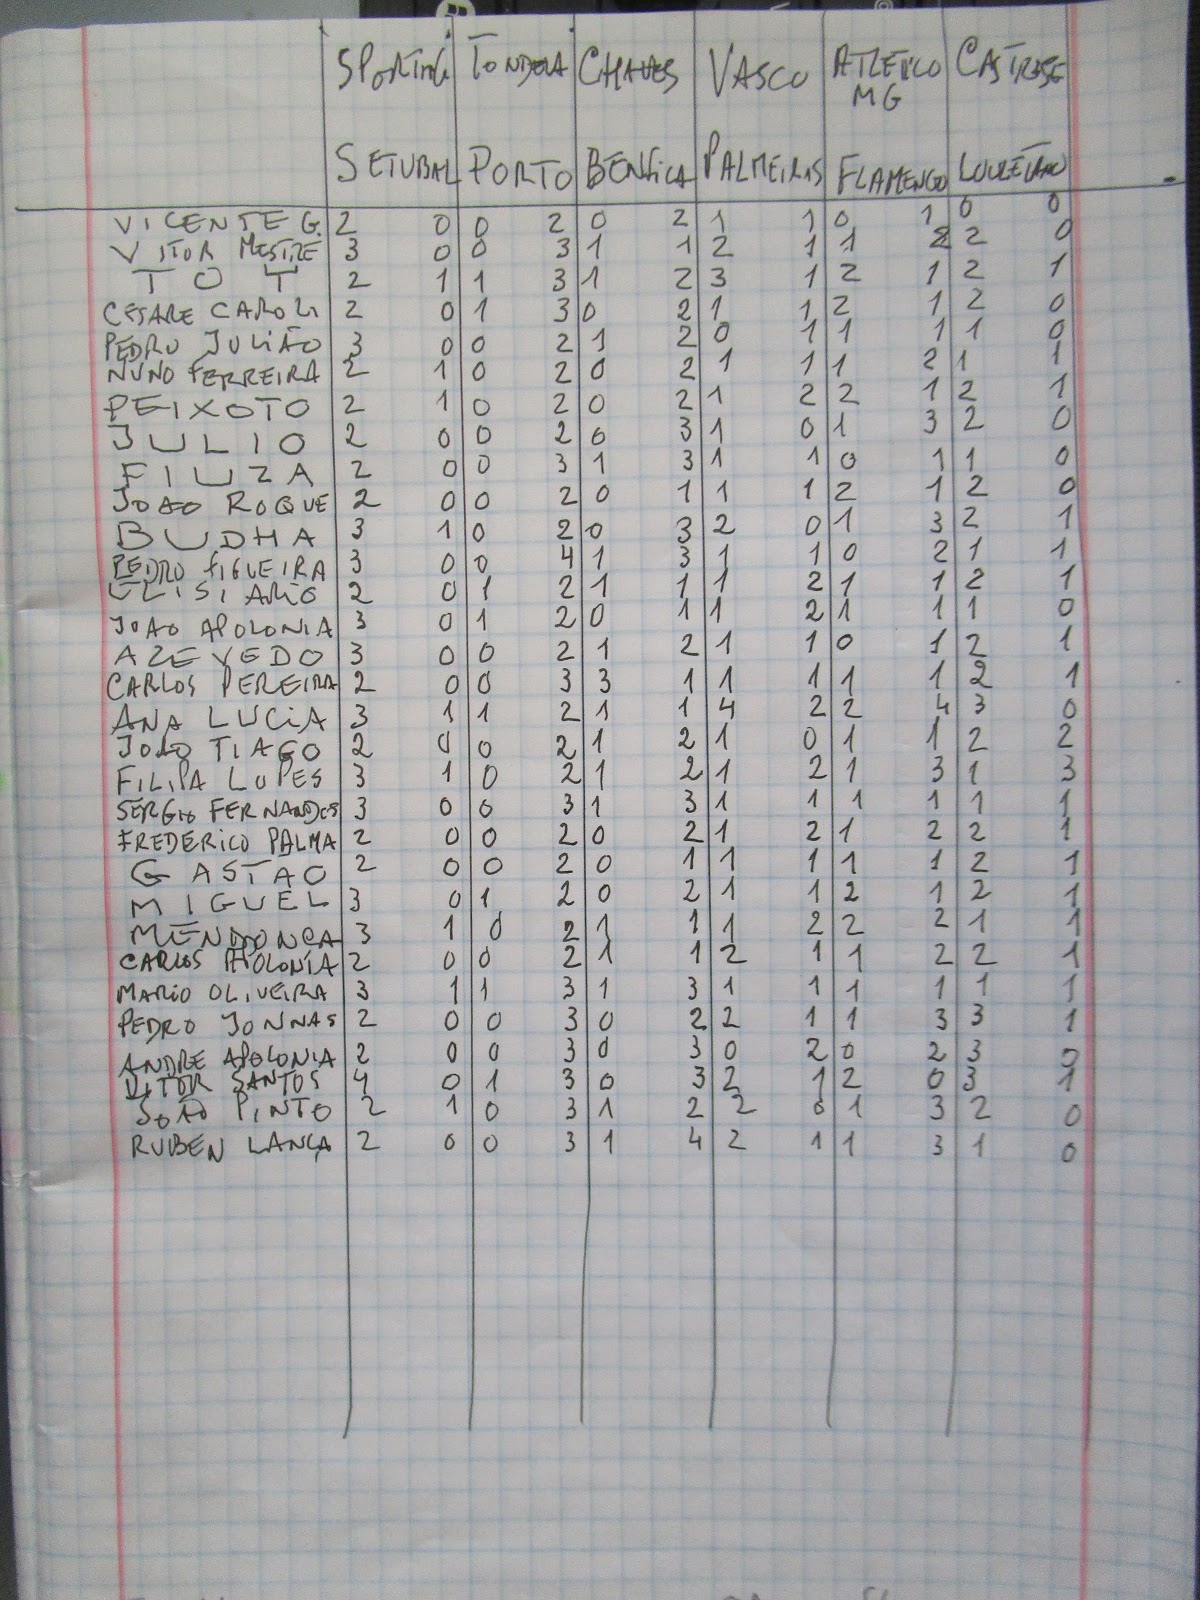 SPORTING TONDELA CHAVES VASCO ATLETICO CASTRESE
MG
SETUBAL PORTO BENFICA PALMEIRAS FLAMENGO
VICENTE G. 2 0 0 2 0 2 1 1 0 1 0 0
VITOR MESTRE 3 0 0 3 1 1 2 1 1 2 2 0
TOT 2 1 1 3 1 2 3 1 2 1 2 1
CESARE CAROLI 2 0 1 3 0 2 1 1 2 1 2 0
PEDRO JULIÃO 3 0 0 2 1 2 0 1 1 1 1 0
NUNO FERREIRA 2 1 0 2 0 2 1 1 1 2 1 1
PEIXOTO 2 1 0 2 0 2 1 2 2 1 2 1
JULIO 2 0 0 2 0 3 1 0 1 3 2 0
FIUZA 2 0 0 3 1 3 1 1 0 1 1 0
JOAO ROQUE 2 0 0 2 0 1 1 1 2 1 2 0
BUDHA 3 1 0 2 0 3 2 0 1 3 2 1
PEDRO FIGUEIRA 3 0 0 4 1 3 1 1 0 2 1 1
ELISIARIO 2 0 1 2 1 1 1 2 1 1 2 1
JOAO APOLONIA 3 0 1 2 0 1 1 2 1 1 1 0
AZEVEDO 3 0 0 2 1 2 1 1 0 1 2 1
CARLOS PEREIRA 2 0 0 3 3 1 1 1 1 1 2 1
ANA LUCIA 3 1 1 2 1 1 4 2 2 4 3 0
JOÃO TIAGO 2 0 0 2 1 2 1 0 1 1 2 2
FILIPA LOPES 3 1 0 2 1 2 1 2 1 3 1 3
SERGIO FERNANDES 3 0 0 3 1 3 1 1 1 1 1 1
FREDERICO PALMA 2 0 0 2 0 2 1 2 1 2 2 1
GASTAO 2 0 0 2 0 1 1 1 1 1 2 1
MIGUEL 3 0 1 2 0 2 1 1 2 1 2 1
MENDONCA 3 1 0 2 1 1 1 2 2 2 1 1
CARLOS APOLONIA 2 0 0 2 1 1 2 1 1 2 2 1
MARIO OLIVEIRA 3 1 1 3 1 3 1 1 1 1 1 1
PEDRO JONNAS 2 0 0 3 0 2 2 1 1 3 3 1
ANDRE APOLONIA 2 0 0 3 0 3 0 2 0 2 3 0
VITOR SANTOS 4 0 1 3 0 3 2 1 2 0 3 1
JOÃO PINTO 2 1 0 3 1 2 2 0 1 3 2 0
RUBEN LANÇA 2 0 0 3 1 4 2 1 1 3 1 0